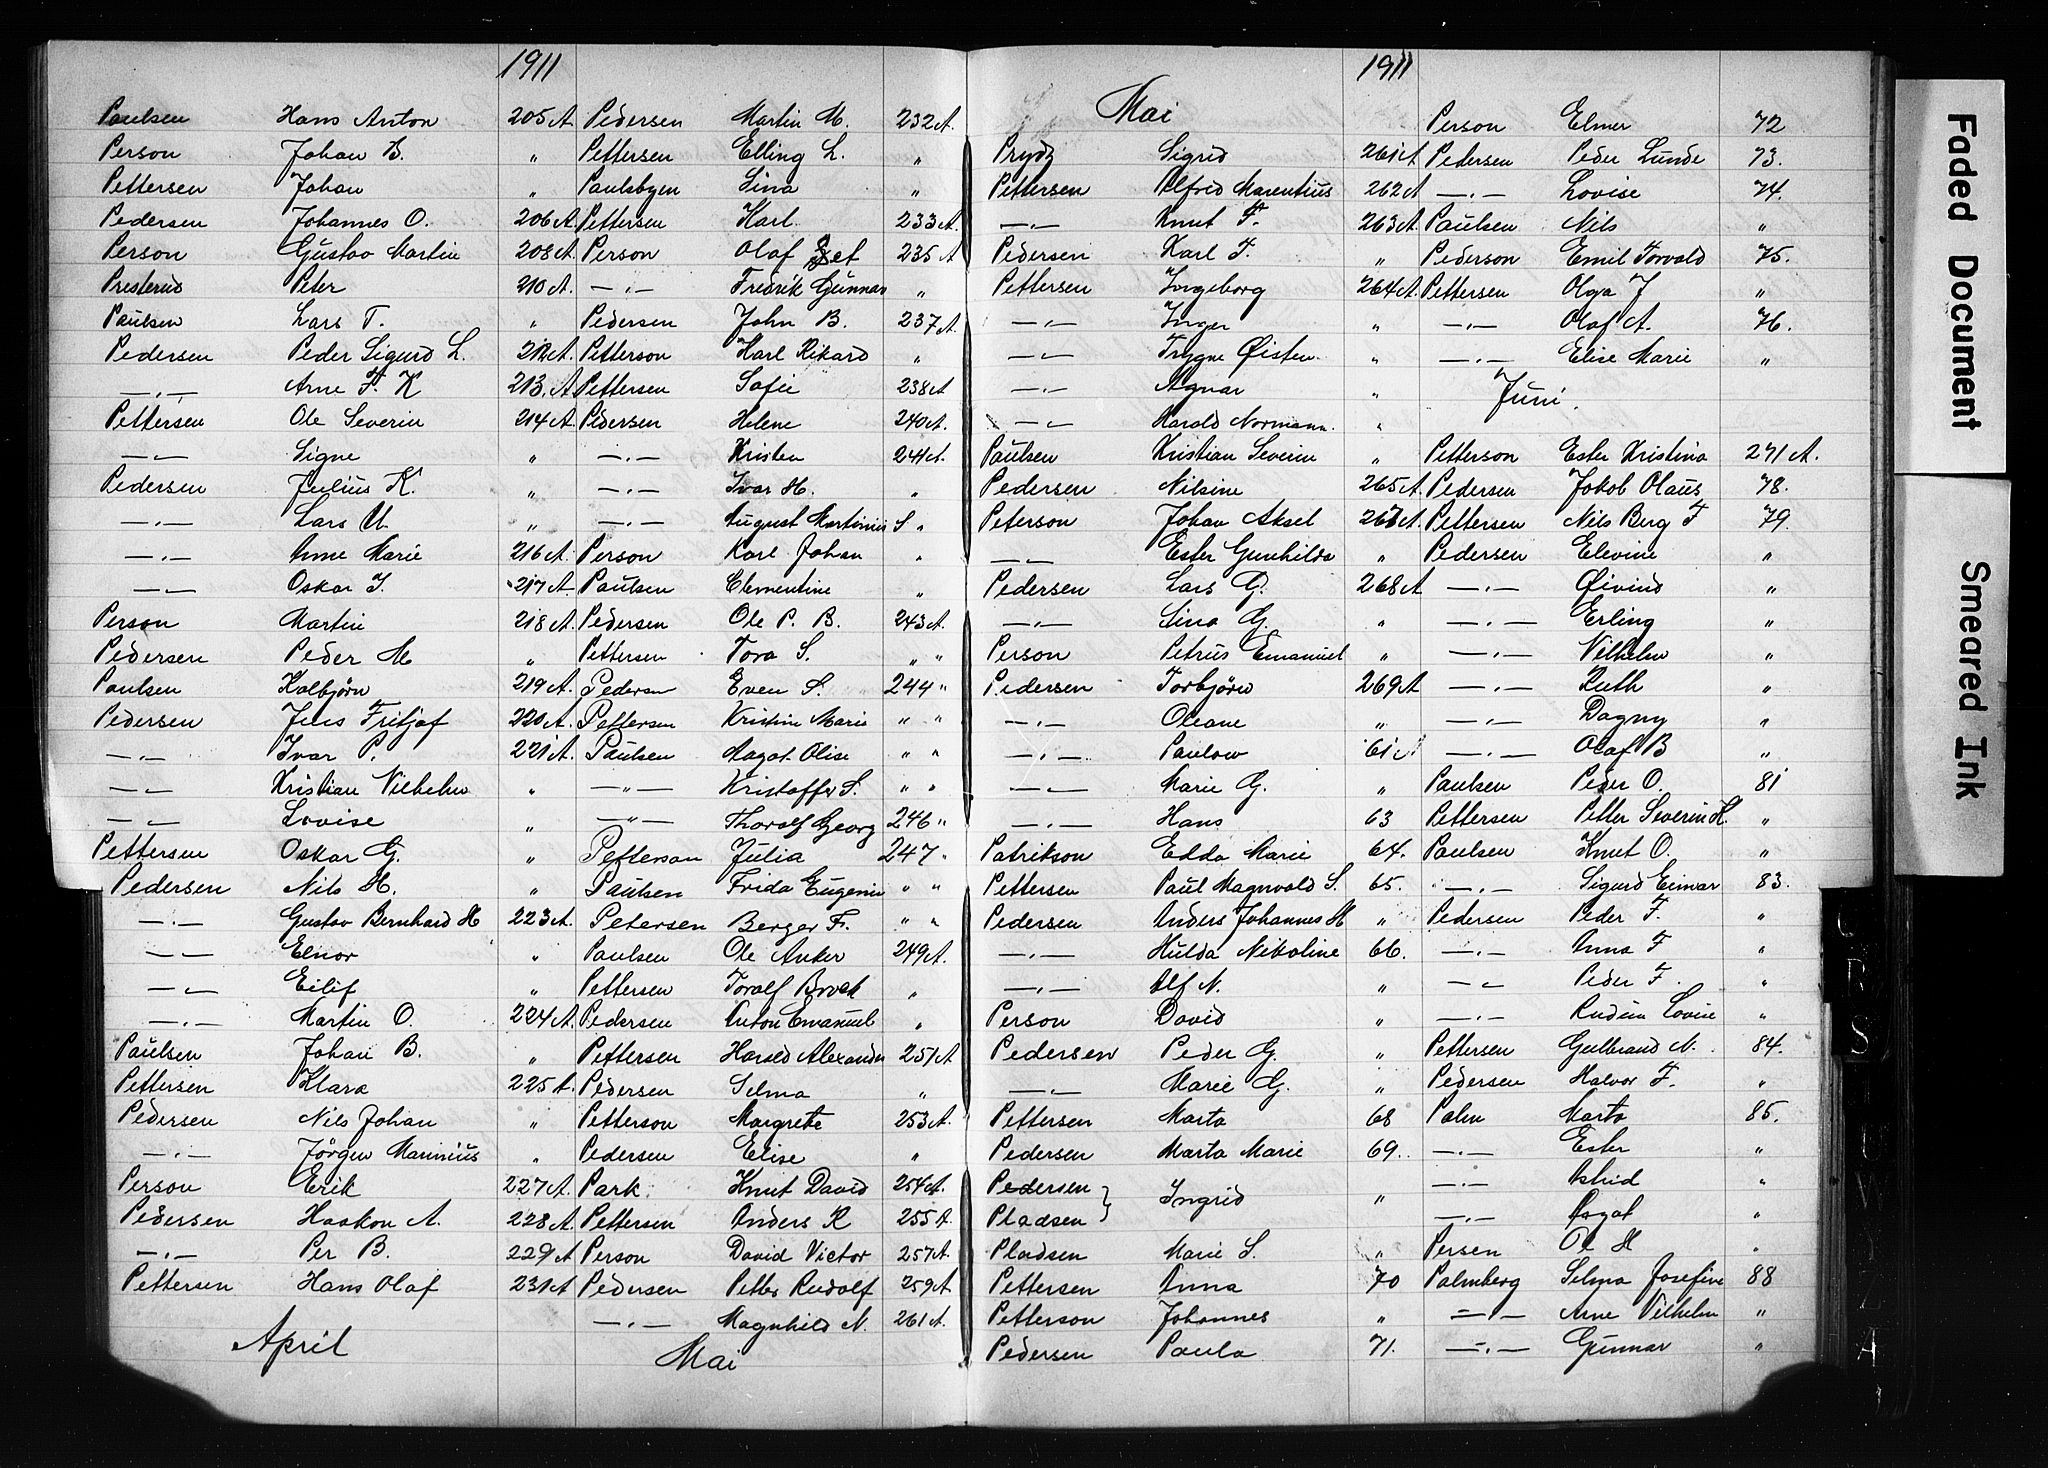 1911
Paulsen Hans Anton 205 A
Person Johan B. "
Pettersen Johan "
Pedersen Johannes O. 206 A
Person Gustav Martin 208 A
Presterud Peter 210 A.
Paulsen Lars T. "
Pedersen Peder Sigurd L. 212 A.
—"— Arne F. K 213. A
Pettersen Ole Severin 214 A
—"— Signe "
Pedersen Julius K. "
—"— Lars U. "
—"— Anne Marie 216 A.
—"— Oskar I. 217 A
Person Martin 218 A.
Pedersen Peder M "
Paulsen Kolbjörn 219 A.
Pedersen Jens Fritjof 220 A.
—"— Ivar P. 221 A.
—"— Kristian Vilhelm "
—"— Lovise "
Pettersen Oskar G. "
Pedersen Nils H. "
—"— Gustav Bernhard H 223 A.
—"— Elnor "
—"— Eilif "
—"— Martin O. 224 A.
Paulsen Johan B. "
Pettersen Klara 225 A.
Pedersen Nils Johan "
—"— Jörgen Marinius "
Person Erik 227 A.
Pedersen Haakon A. 228 A.
—"— Per B. 229 A
Pettersen Hans Olaf 231 A
April
Pedersen Martin M. 232 A.
Pettersen Elling L. "
Paulsbyen Lina "
Pettersen Karl. 233 A.
Person Olaf 235 A
—"— Fredrik Gunnar "
Pedersen John B. 237 A.
Petterson Karl Rikard "
Pettersen Sofie 238 A
Pedersen Helene 240 A.
—"— Kristen 241 A.
—"— Ivar H. "
—"— August Martinius S "
Person Karl Johan "
Paulsen Clementine "
Pedersen Ole P. B. 243 A.
Pettersen Tora S. " "
Pedersen Even S. 244 "
Pettersen Kristine Marie " "
Paulsen Aagot Olise " "
—"— Kristoffer S. " "
—"— Thoralf Georg 246 "
Petterson Julia 247 "
Paulsen Frida Eugenie " "
Petersen Berger F. " "
Paulsen Ole Anker 249 A.
Pettersen Toralf Brock "
Pedersen Anton Emanuel "
Pettersen Harald Alexander 251 A
Pedersen Selma "
Petterson Margrete 253 A.
Pedersen Elise "
Park. Knut David 254 A.
Pettersen Anders K 255 A.
Person David Victor 257 A.
Pedersen Petter Rudolf 259 A.
—"— Magnhild N. 261 A.
Mai
1911
Mai
Prydz Sigrid 261 A
Pettersen Alfred Marentius 262 A
—"— Knut F. 263 A
Pedersen Karl F. "
Pettersen Ingeborg 264 A.
—"— Inger "
—"— Trygve Øisten "
—"— Agnar "
—"— Harald Normann. "
Paulsen Kristian Severin "
Pedersen Nilsine 265 A.
Peterson Johan Aksel 267 A.
—"— Ester Gunhilda "
Pedersen Lars G. 268 A
—"— Lina G. "
Person Petrus Emanuel "
Pedersen Torbjörn 269 A
—"— Oleane "
—"— Paulow 61 A
—"— Marie G. "
—"— Hans 63
Patrikson Edda Marie 64.
Pettersen Paul Magnvald S. 65.
Pedersen Anders Johannes H "
—"— Hulda Nikoline 66.
—"— Alf N. "
Person David "
Pedersen Peder G. "
—"— Marie G. "
Pettersen Marta 68
Pedersen Marta Marie 69.
Pedersen }
Pladsen } Ingrid "
Pladsen Marie S. "
Pettersen Anna 70
Petterson Johannes "
Pedersen Paula 71.
Person Elmer 72
Pedersen Peder Lunde 73.
—"— Lovise 74.
Paulsen Nils "
Pederson Emil Torvald 75.
Pettersen Olga J "
—"— Olaf A. 76.
—"— Elise Marie "
Juni.
Petterson Ester Kristina 271 A.
Pedersen Jakob Olaus 78.
Pettersen Nils Berg F 79.
Pedersen Elevine "
—"— Øivind "
—"— Erling "
—"— Vilhelm "
—"— Ruth "
—"— Dagny "
—"— Olaf B "
Paulsen Peder O. 81
Pettersen Petter Severin H. "
Paulsen Knut O. "
—"— Sigurd Eimar 83.
Pedersen Peder F. "
—"— Anna F "
—"— Peder F. "
—"— Lovise "
Pettersen Gulbrand N. 84.
Pedersen Halvor F. "
Palm Marta 85.
—"— Ester "
—"— Astrid "
—"— Aagot "
Persen Ole H "
Palmberg Selma Josefine 88
—"— Arne Vilhelm "
—"— Gunnar "
Faded Document
Smeared Ink